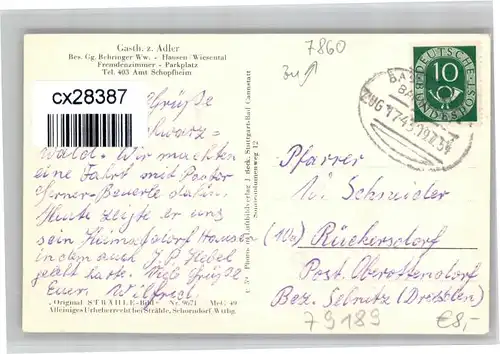 Gasth. z. Adler
Bes. Gg. Behringer Ww. - Hausen/Wiesental
Fremdenzimmer - Parkplatz
Tel. 403 Amt Schopfheim
cx28387
Grüße
Schwarz=
wald. Wir machten
eine Fahrt mit Pastor
Berner-Beuerle dahin.
Heute zeigte er uns
sein Heimatdorf Hausen
in dem auch J. P. Hebel
gelebt hatte. Viele Grüße
Euer Wilfried.
"Original STRÄHLE-Bild" Nr. 9621 Met. 49
Alleiniges Urheberrecht bei Strähle, Schorndorf/Wttbg.
Photo- und Luftbildverlag J. Beck, Stuttgart-Bad Cannstatt
12
7860
DEUTSCHE
BUNDESPOST
10
BA
ZUG 1743
Pfarrer
W. Schneider
(10a) Rückersdorf
Post Oberottendorf
Bez. Sebnitz (Dresden)
79189
€8,-